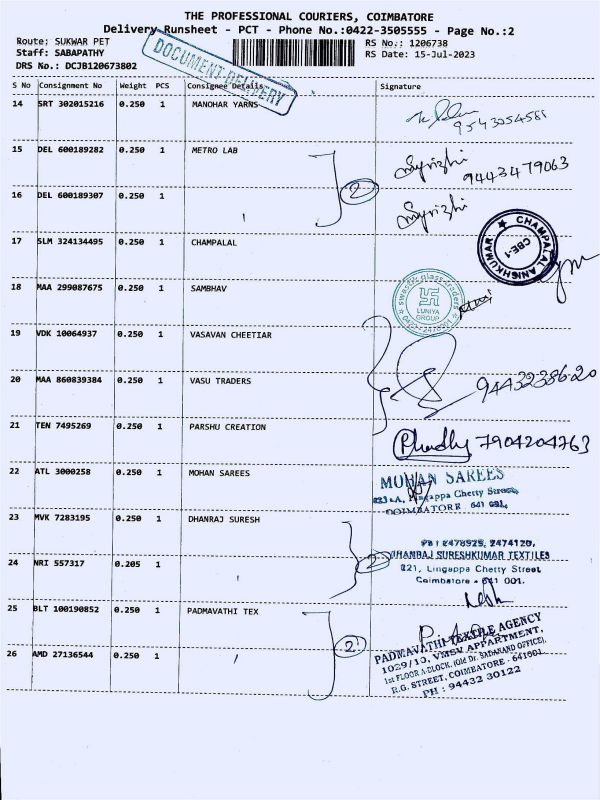 THE PROFESSIONAL COURIERS, COIMBATORE
Delivery Runsheet - PCT - Phone No.:0422-3505555 - Page No.:2
Route: SUKWAR PET
RS No.: 1206738
Staff: SABAPATHY
RS Date: 15-Jul-2023
DRS No.: DCJB120673802
DOCUMENT DELIVERY
S No Consignment No Weight PCS Consignee Details Signature
14 SRT 302015216 0.250 1 MANOHAR YARNS
9543054581
15 DEL 600189282 0.250 1 METRO LAB
9443479063
16 DEL 600189307 0.250 1
2
17 SLM 324134495 0.250 1 CHAMPALAL
CHAMPALAL ANISHKUMAR
CBE-1
18 MAA 299087675 0.250 1 SAMBHAV
LUNIYA
GROUP
19 VDK 10064937 0.250 1 VASAVAN CHEETIAR
20 MAA 860839384 0.250 1 VASU TRADERS
9443238620
21 TEN 7495269 0.250 1 PARSHU CREATION
7904204763
22 ATL 3000258 0.250 1 MOHAN SAREES
MOHAN SAREES
Lingappa Chetty Street,
COIMBATORE 641 001.
23 MVK 7283195 0.250 1 DHANRAJ SURESH
PH: 2478925, 2474120,
DHANRAJ SURESHKUMAR TEXTILES
24 NRI 557317 0.205 1
2
221, Lingappa Chetty Street
Coimbatore - 641 001.
25 BLT 100190852 0.250 1 PADMAVATHI TEX
2
PADMAVATHI TEXTILE AGENCY
1029/13, VMSV APPARTMENT,
1st FLOOR A-BLOCK, (Old Dr. SADANAND OFFICE),
R.G. STREET, COIMBATORE - 641001
PH : 94432 30122
26 AMD 27136544 0.250 1